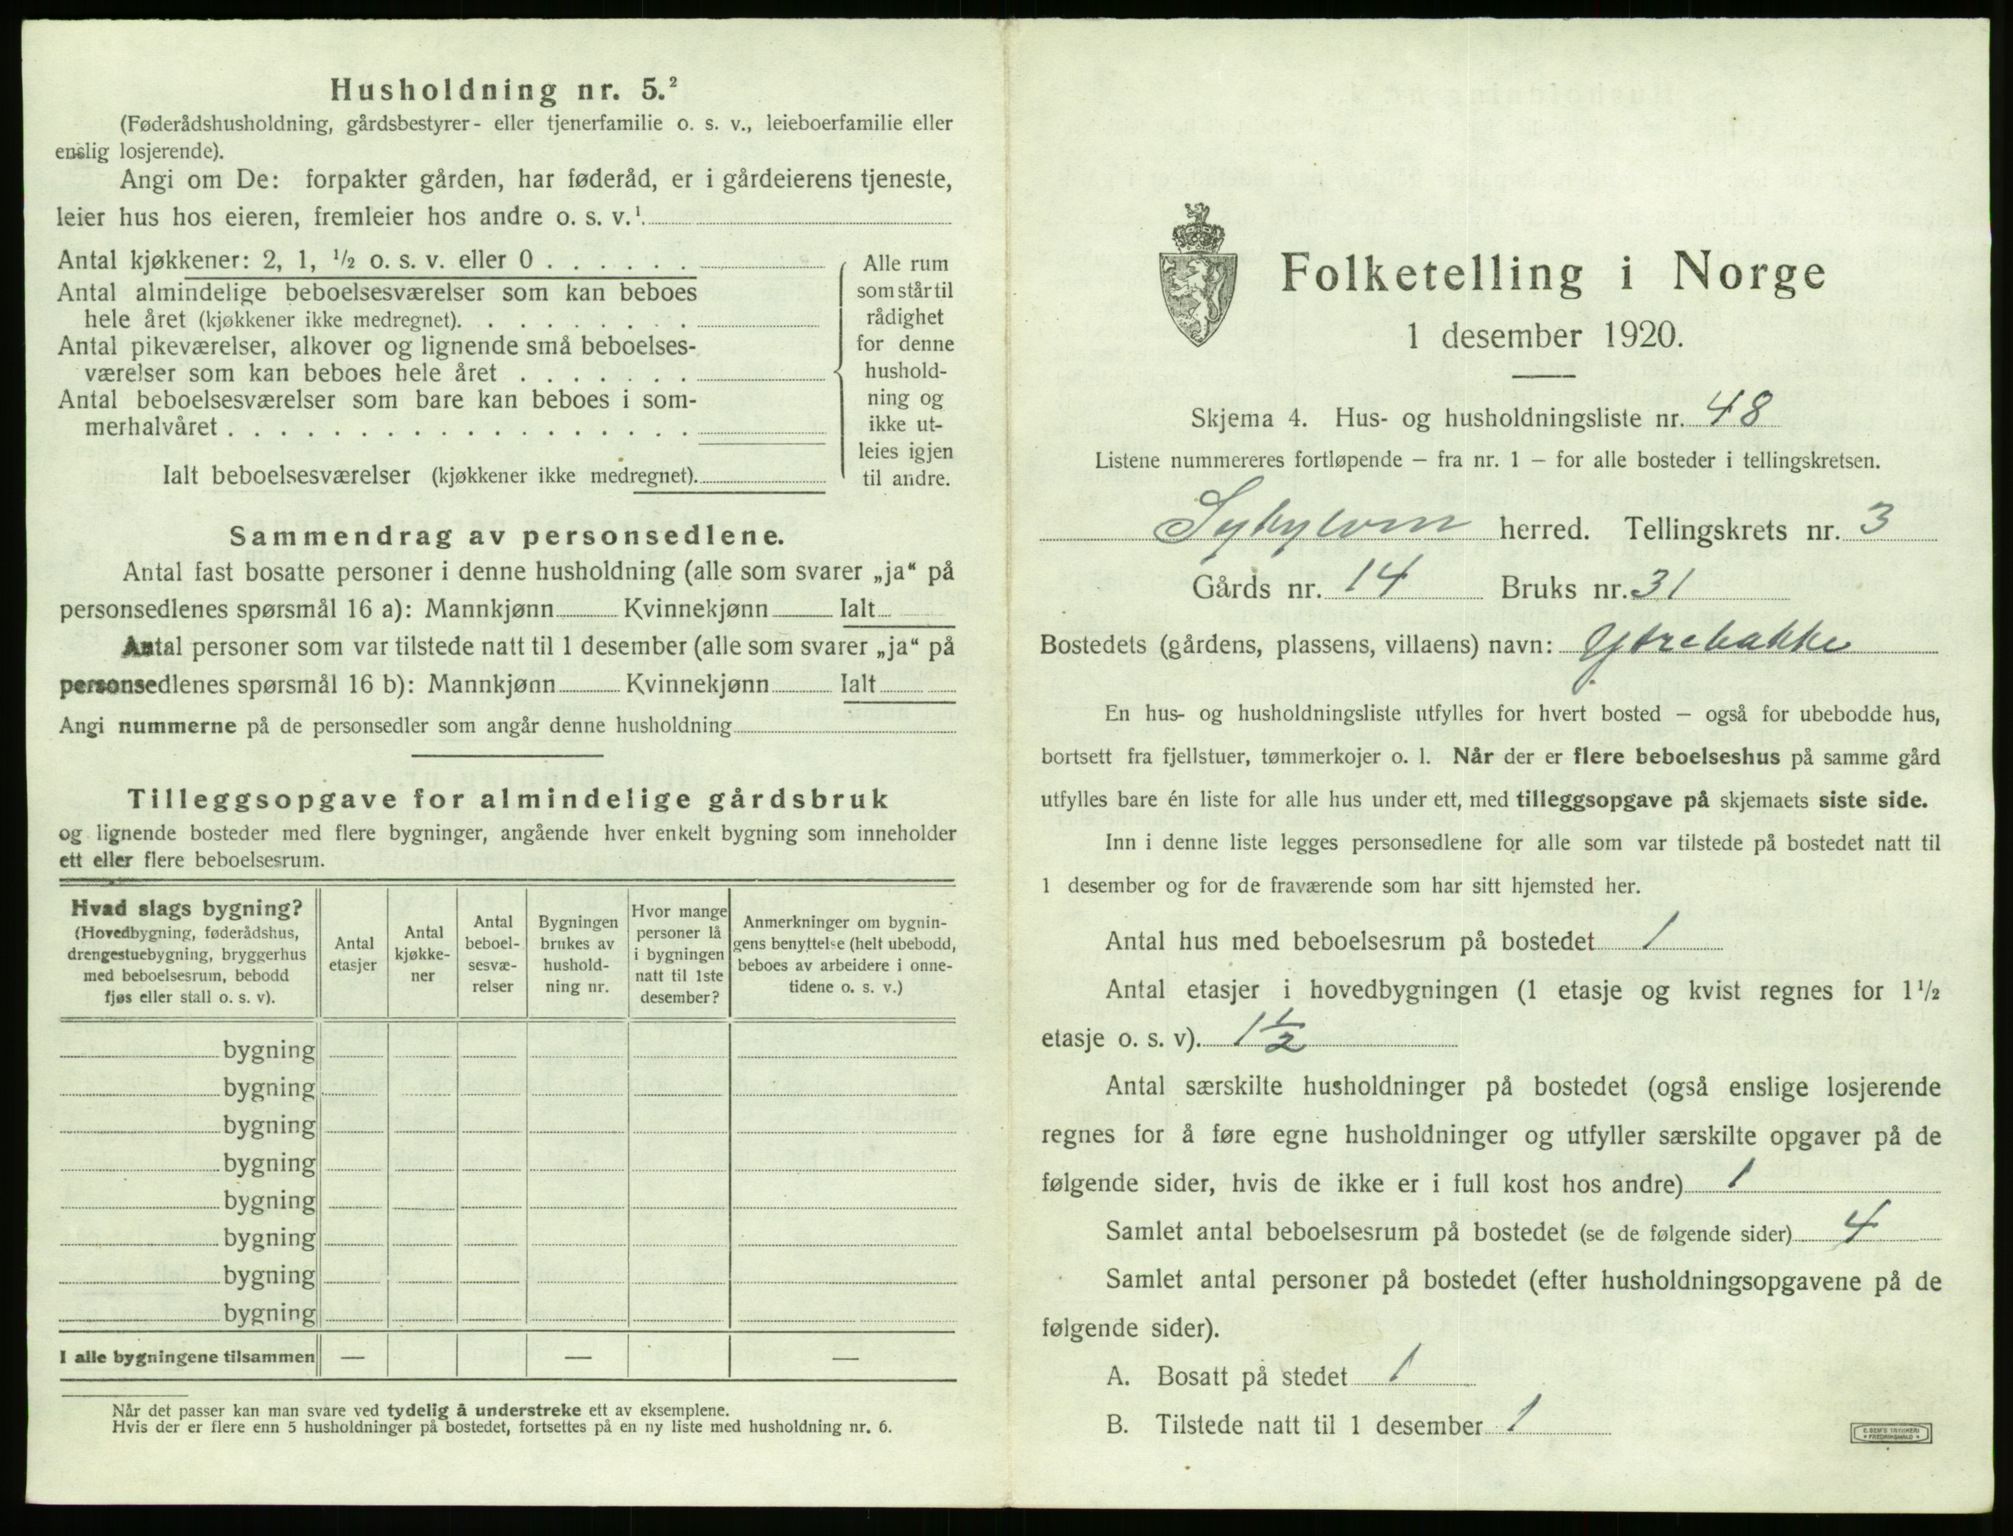 Husholdning nr. 5.²
(Føderådshusholdning, gårdsbestyrer- eller tjenerfamilie o. s. v., leieboerfamilie eller
enslig losjerende).
Angi om De: forpakter gården, har føderåd, er i gårdeierens tjeneste,
leier hus hos eieren, fremleier hos andre o. s. v.¹
Antal kjøkkener: 2, 1, ½ o. s. v. eller 0 . . . . . .
Antal almindelige beboelsesværelser som kan beboes
hele året (kjøkkener ikke medregnet). . . . . . . . .
Antal pikeværelser, alkover og lignende små beboelses-
værelser som kan beboes hele året . . . . . . .
Antal beboelsesværelser som bare kan beboes i som-
merhalvåret . . . . . . . . . . . . . . . . . .
Ialt beboelsesværelser (kjøkkener ikke medregnet).
Alle rum
som står til
rådighet
for denne
hushold-
ning og
ikke ut-
leies igjen
til andre.
Sammendrag av personsedlene.
Antal fast bosatte personer i denne husholdning (alle som svarer „ja“ på
personsedlenes spørsmål 16 a): Mannkjønn Kvinnekjønn Ialt
Antal personer som var tilstede natt til 1 desember (alle som svarer „ja“ på
personsedlenes spørsmål 16 b): Mannkjønn Kvinnekjønn Ialt
Angi nummerne på de personsedler som angår denne husholdning
Tilleggsopgave for almindelige gårdsbruk
og lignende bosteder med flere bygninger, angående hver enkelt bygning som inneholder
ett eller flere beboelsesrum.
Hvad slags bygning?
(Hovedbygning, føderådshus,
drengestuebygning, bryggerhus
med beboelsesrum, bebodd
fjøs eller stall o. s. v).
Antal
etasjer
Antal
kjøkke-
ner
Antal
beboel-
sesvæ-
relser
Bygningen
brukes av
hushold-
ning nr.
Hvor mange
personer lå
i bygningen
natt til 1ste
desember?
Anmerkninger om bygnin-
gens benyttelse (helt ubebodd,
beboes av arbeidere i onne-
tidene o. s. v.)
bygning
bygning
bygning
bygning
bygning
bygning
bygning
bygning
I alle bygningene tilsammen — — —
Når det passer kan man svare ved tydelig å understreke ett av eksemplene.
Hvis der er flere enn 5 husholdninger på bostedet, fortsettes på en ny liste med husholdning nr. 6.
Folketelling i Norge
1 desember 1920.
Skjema 4. Hus- og husholdningsliste nr. 48
Listene nummereres fortløpende – fra nr. 1 – for alle bosteder i tellingskretsen.
herred. Tellingskrets nr. 3
Gårds nr. 14 Bruks nr. 31
Bostedets (gårdens, plassens, villaens) navn: Ytrebakke
En hus- og husholdningsliste utfylles for hvert bosted – også for ubebodde hus,
bortsett fra fjellstuer, tømmerkojer o. l. Når der er flere beboelseshus på samme gård
utfylles bare én liste for alle hus under ett, med tilleggsopgave på skjemaets siste side.
Inn i denne liste legges personsedlene for alle som var tilstede på bostedet natt til
1 desember og for de fraværende som har sitt hjemsted her.
Antal hus med beboelsesrum på bostedet 1
Antal etasjer i hovedbygningen (1 etasje og kvist regnes for 1½
etasje o. s. v). 1½
Antal særskilte husholdninger på bostedet (også enslige losjerende
regnes for å føre egne husholdninger og utfyller særskilte opgaver på de
følgende sider, hvis de ikke er i full kost hos andre) 1
Samlet antal beboelsesrum på bostedet (se de følgende sider) 4
Samlet antal personer på bostedet (efter husholdningsopgavene på de
følgende sider).
A. Bosatt på stedet 1
B. Tilstede natt til 1 desember 1